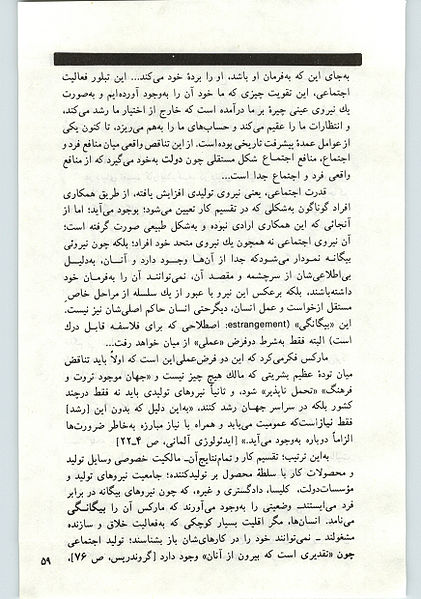 به‌جای این که به‌فرمان او باشد، او را بردهٔ خود می‌کند... این تبلور فعالیت
اجتماعی، این تقویت چیزی که ما خود آن را به‌وجود آورده‌ایم و به‌صورت
یك نیروی عینی چیرهٔ بر ما درآمده است که خارج از اختیار ما رشد می‌کند،
و انتظارات ما را عقیم می‌کند و حساب‌های ما را به‌هم می‌ریزد، تا کنون یکی
از عوامل عمدهٔ پیشرفت تاریخی بوده است. از این تناقص واقعی میان منافع فرد و
اجتماع، منافع اجتماع شکل مستقلی چون دولت به‌خود می‌گیرد که از منافع
واقعی فرد و اجتماع جدا است...
قدرت اجتماعی، یعنی نیروی تولیدی افزایش یافته، از طریق همکاری
افراد گوناگون به‌شکلی که در تقسیم کار تعیین می‌شود؛ بوجود می‌آید؛ اما از
آنجائی که این همکاری ارادی نبوده و به‌شکل طبیعی صورت گرفته است؛
آن نیروی اجتماعی نه همچون یك نیروی متحد خود افراد؛ بلکه چون نیروئی
بیگانه نمودار می‌شودکه جدا از آن‌ها وجود دارد و آنان، به‌دلیل
بی‌اطلاعی‌شان از سرچشمه و مقصد آن، نمی‌توانند آن را به‌فرمان خود
داشته‌باشند، بلکه برعکس این نیرو با عبور از یك سلسله از مراحل خاص
مستقل ازخواست و عمل انسان، دیگرحتی انسان حاکم اصلی‌شان نیز نیست.
این «بیگانگی» (estrangement: اصطلاحی که برای فلاسفه قابل درك
است) البته فقط به‌شرط دوفرض «عملی» از میان خواهد رفت...
مارکس فکرمی‌کرد که این دو فرض‌عملی‌این است که اولاً باید تناقض
میان تودهٔ عظیم بشریتی که مالك هیچ چیز نیست و «جهان موجود ثروت و
فرهنگ» «تحمل ناپذیر» شود، و ثانیاً نیروهای تولیدی باید نه فقط درچند
کشور بلکه در سراسر جهان رشد کنند، «به‌این دلیل که بدون این [رشد]
فقط نیازاست‌که عمومیت می‌یابد و همراه با نیاز مبارزه به‌خاطر ضرورت‌ها
الزاماً دوباره به‌وجود می‌آید.» [ایدئولوژی آلمانی، ص ۴ـ۲۲]
به‌این ترتیب؛ تقسیم کار و تمام‌نتایج‌آن‌ـ مالکیت خصوصی وسایل تولید
و محصولات کار با سلطهٔ محصول بر تولیدکننده؛ جامعیت نیروهای تولید و
مؤسسات‌دولت، کلیسا، دادگستری و غیره، که چون نیروهای بیگانه در برابر
فرد می‌ایستندـ وضعیتی را به‌وجود می‌آورند که مارکس آن را بیگانـگی
می‌نامد. انسان‌ها، مگر اقلیت بسیار کوچکی که به‌فعالیت خلاق و سازنده
مشغولند ـ نمی‌توانند خود را در کارهای‌شان باز بشناسند؛ تولید اجتماعی
چون «تقدیری است که بیرون از آنان» وجود دارد [گروندریس، ص ۷۶]،
۵۹